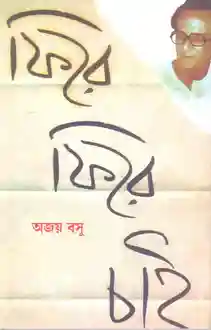 ফিরে
ফিরে
অজয় বসু
চাই